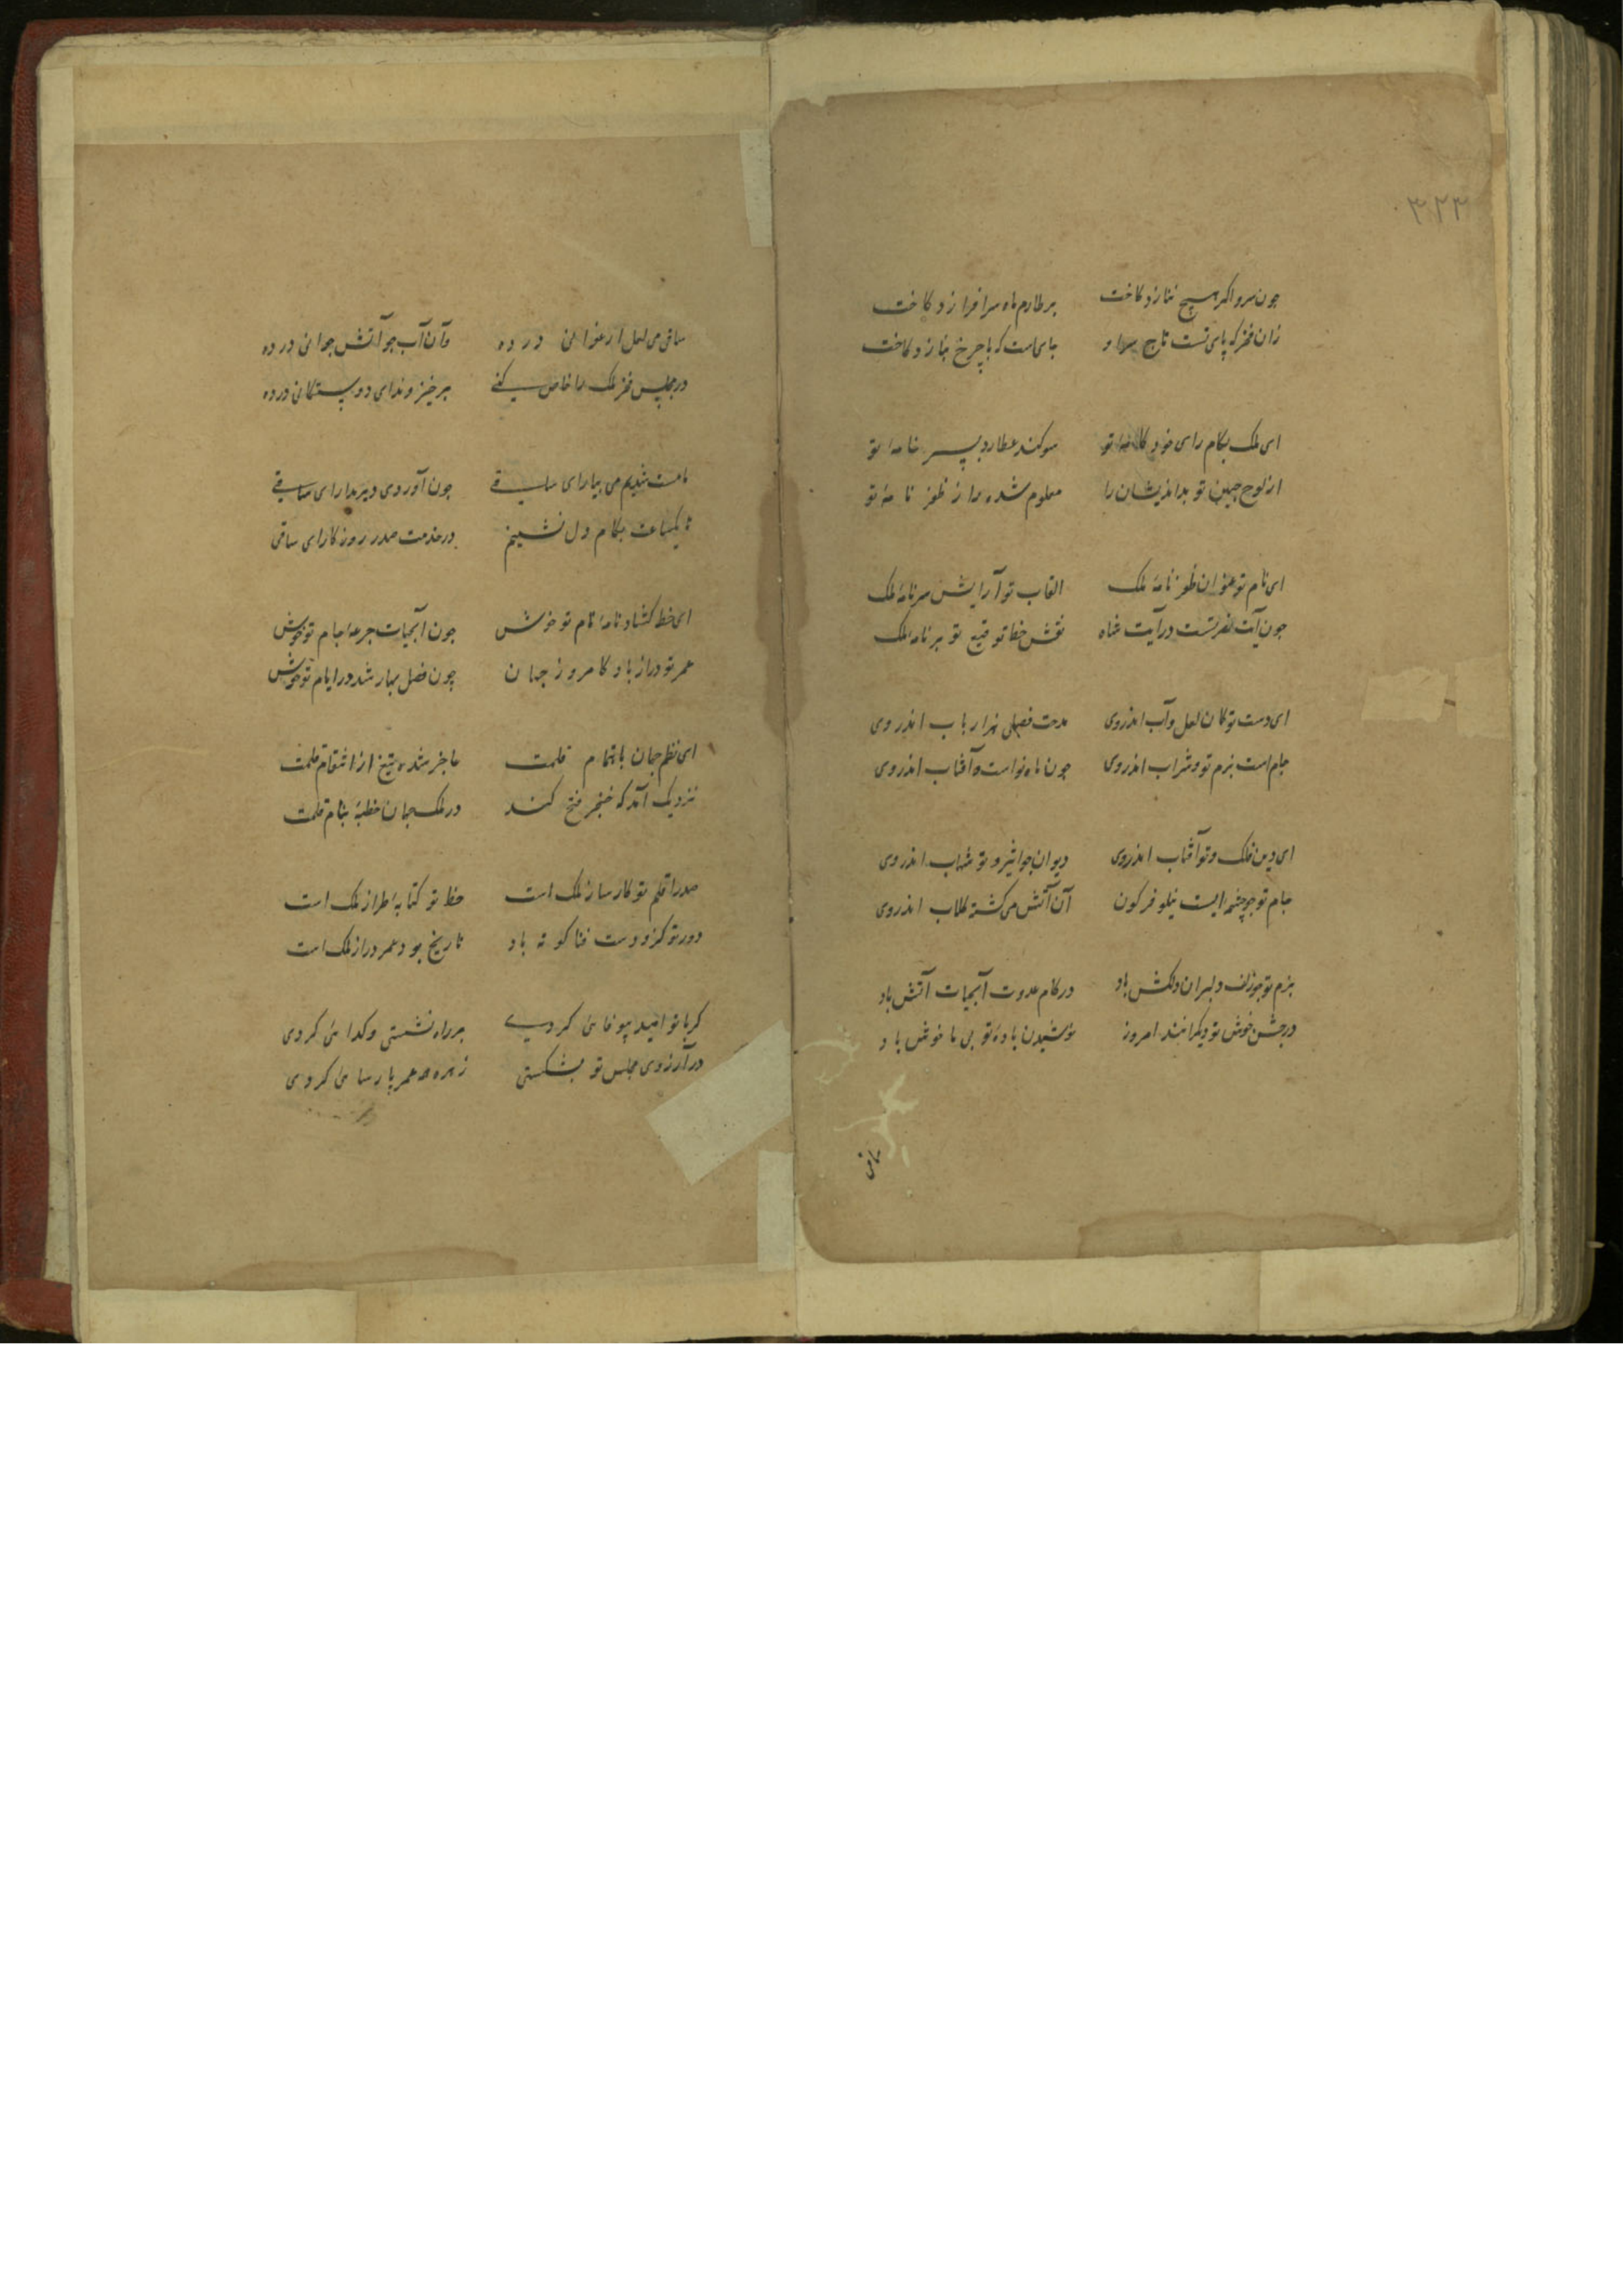 ۳۲۳
چون سرو اکر هیچ بنازد کاخت بر طارم ماه سرافرازد کاخت
زان فخر که پای تست تاج سر او جای است که با چرخ بنازد کاخت
ای ملک بکام رای خودکامهٔ تو سوکند عطارد بسر خامهٔ تو
از لوح جبین تو بداندیشان را معلوم شده راز ظفر نامهٔ تو
ای نام تو عنوان ظفرنامهٔ ملک القاب تو آرایش سرنامهٔ ملک
چون آیت نصرتست در آیت شاه نقش خط توقیع تو بر نامهٔ ملک
ای دست تو کان لعل و آب اندروی مدحت فصلی هزار باب اندروی
جام است بزم تو و شراب اندروی چون ماه نو است و آفتاب اندروی
ای دین فلک و تو آفتاب اندروی دیوان چو اثیر و تو شهاب اندروی
جام تو چو چشمه ایست نیلوفرکون آن آتش می کشته کلاب اندروی
بزم تو چو زلف دلبران دلکش باد در کام عدوت آبحیات آتش باد
در جشن خوش تو دیکرانند امروز نوشیدن بادهٔ تو بی ما خوش باد
ساقی
ساقی می لعل ارغوانی در ده وآن آب چو آتش جوانی در ده
در مجلس فخر ملک را خاص کنی برخیز و ندای دوستکانی در ده
ما مست شدیم می بیار ای ساقی چون آوردی دیر بدار ای ساقی
تا یکساعت بکام دل نشینم در خدمت صدر روزکار ای ساقی
ای خط کشاد نامهٔ نام تو خوش چون آبحیات جرعهٔ جام تو خوش
عمر تو دراز باد کامروز جهان چون فصل بهار شد در ایام تو خوش
ای نظم جهان باهتمام قلمت عاجز شده تیغ از انتقام قلمت
نزدیک آمد که خنجر فتح کند در ملک جهان خطبه بنام قلمت
صدرا قلم تو کارساز ملک است خط تو کتابهٔ طراز ملک است
دور تو کزو دست فنا کوته باد تاریخ بود عمر دراز ملک است
کر با تو امید پیوفائی کردی بر راه نشستی و کدائی کردی
در آرزوی مجلس تو بشکستی زهره همه عمر پارسائی کردی